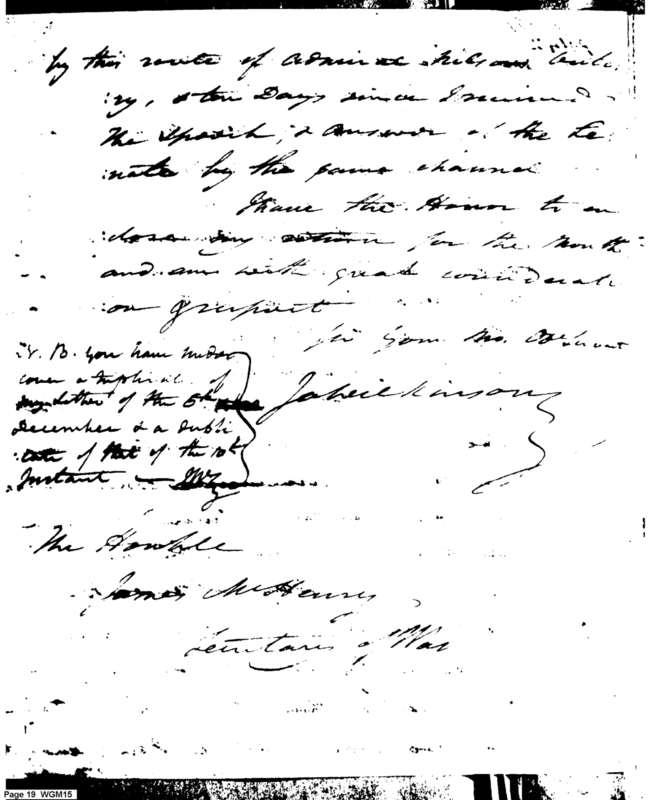 by this route of Admiral Nelson's Victo
ry, & ten Days since I received
the Speech, & answer of the Se
nate by the same channel
I have the Honor to en
close my return for the Month
and am with great considerati
on & respect
Sir Your Mo. Ob. Servant
N. B. you have under
cover a triplicate of
my Letter of the 5th
December & a dupli
cate of that of the 10th
Instant — JW
Ja Wilkinson
The Honble
James McHenry
Secretary of War
Page 19 WGM15